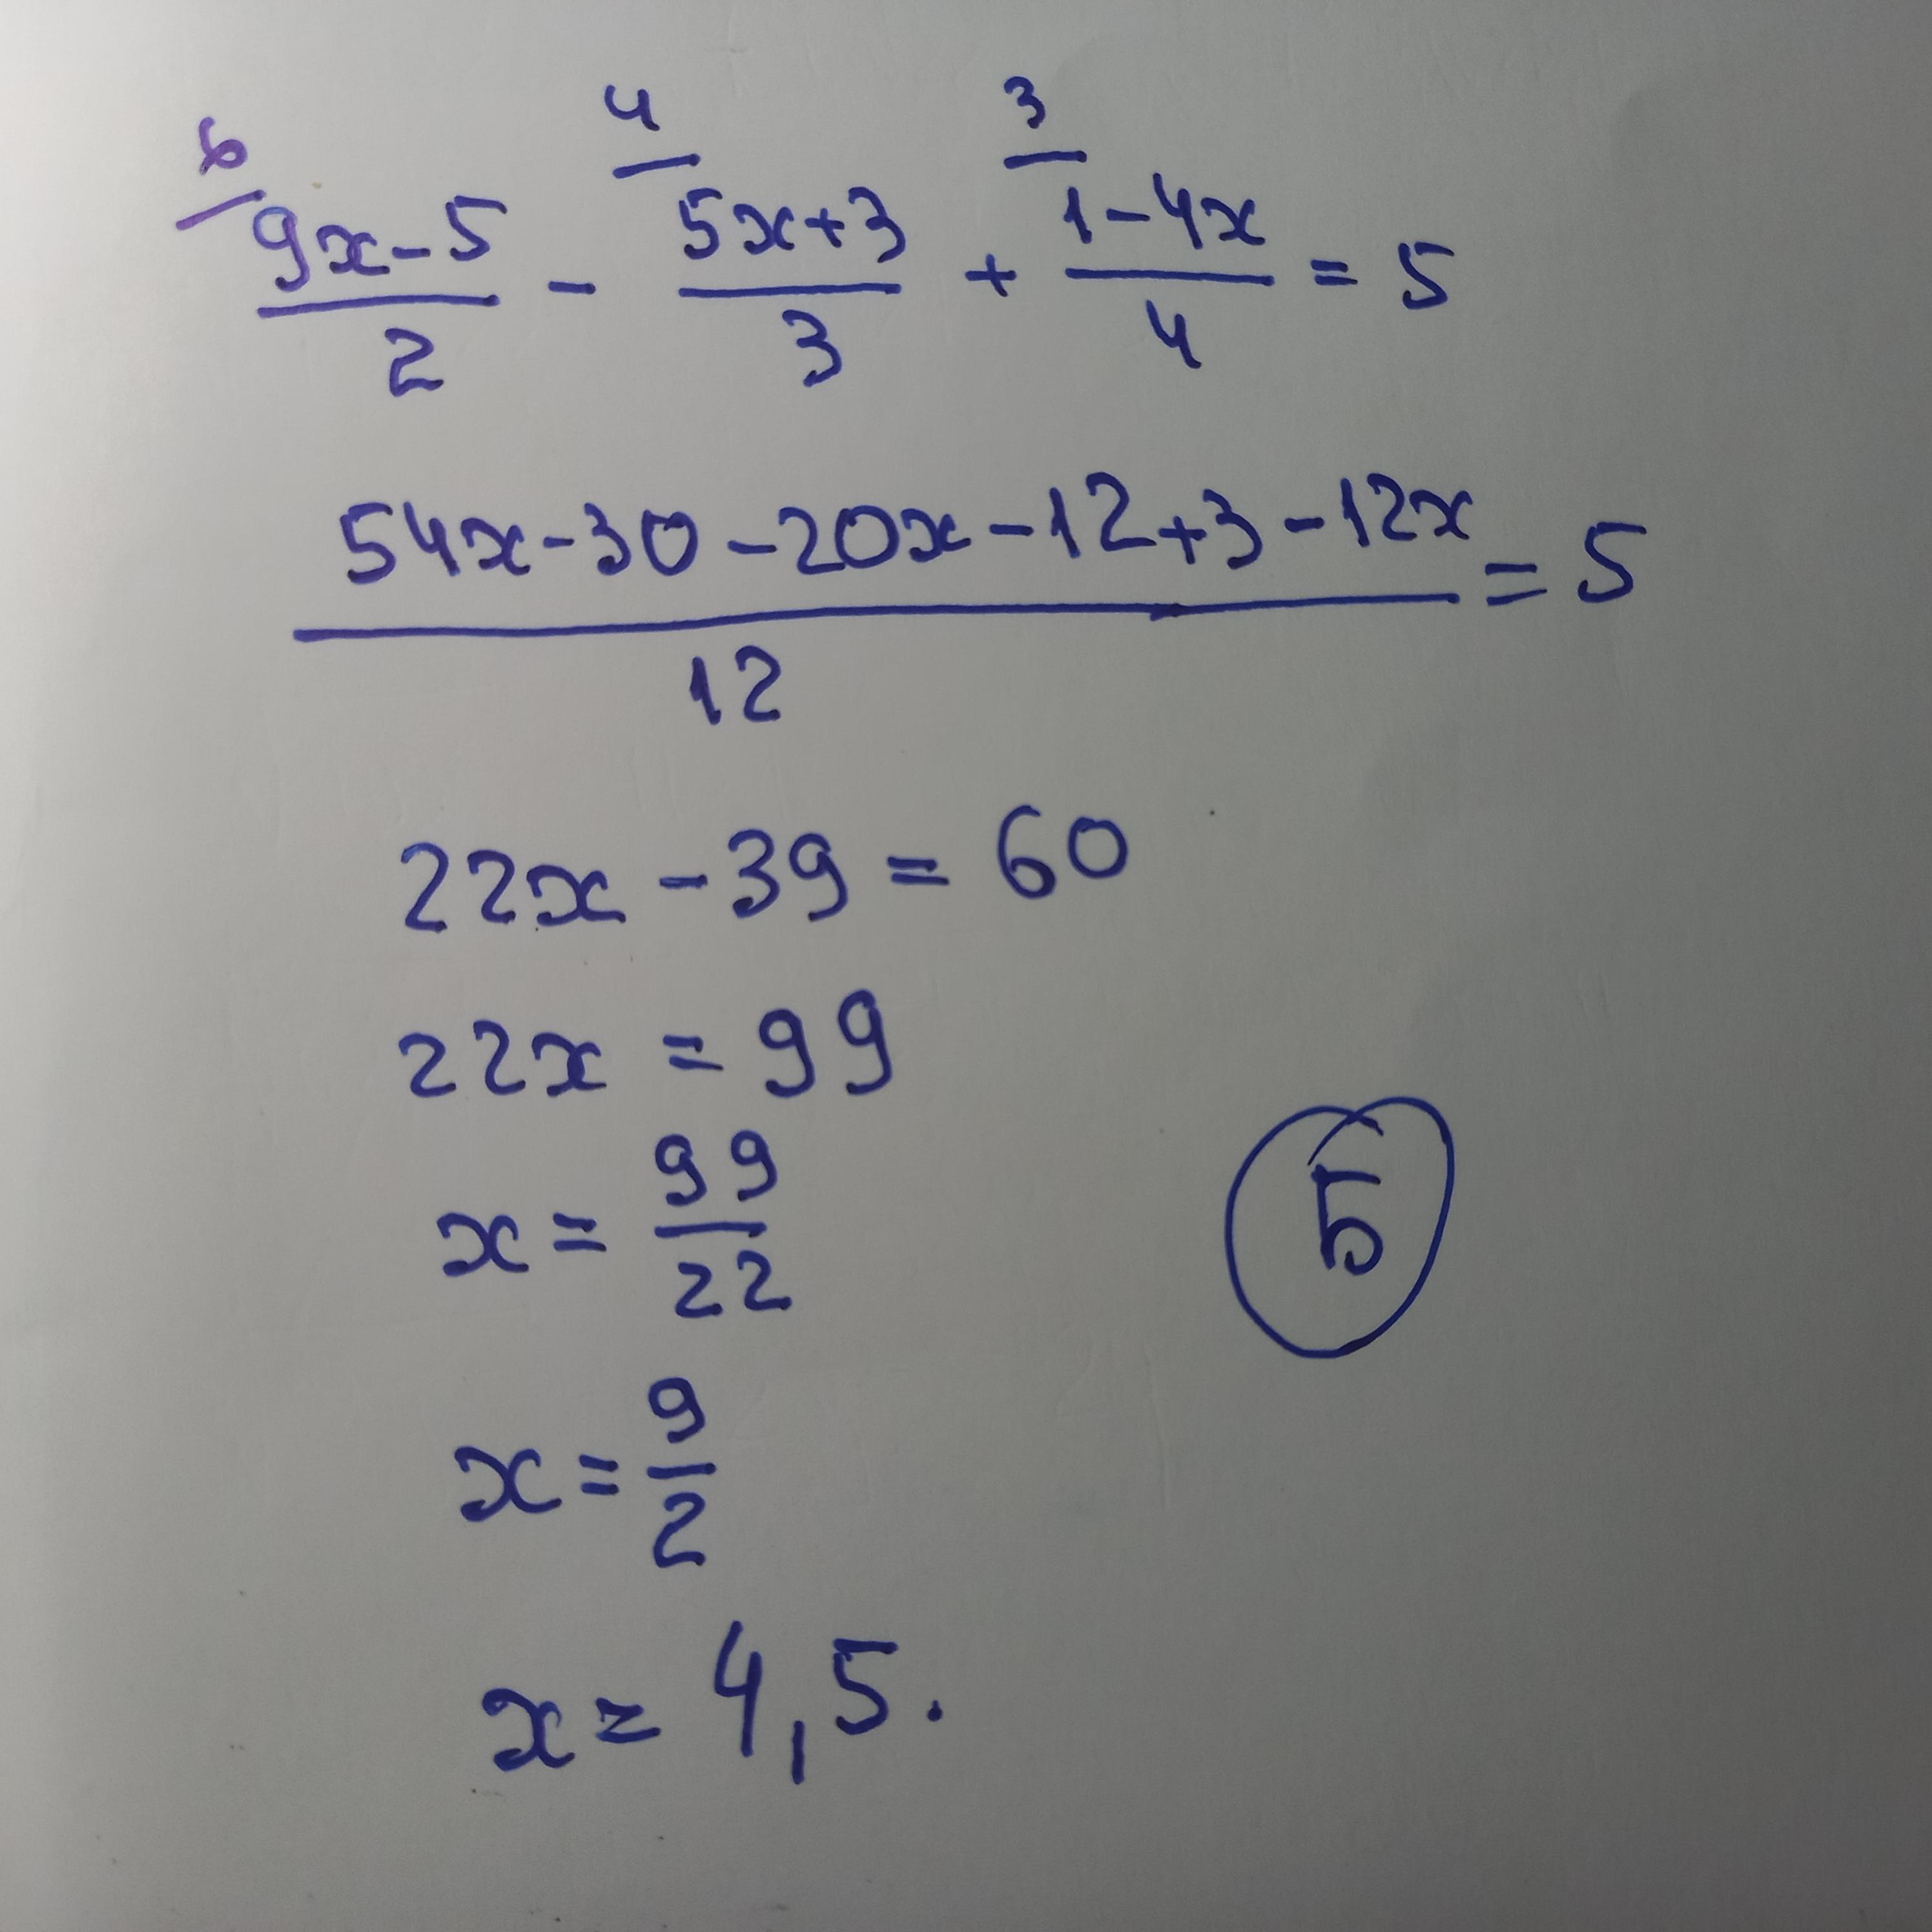 6 4 3
9x-5/2 - 5x+3/3 + 1-4x/4 = 5
54x-30-20x-12+3-12x/12 = 5
22x-39=60
22x=99
x=99/22
Б
x=9/2
x=4,5.